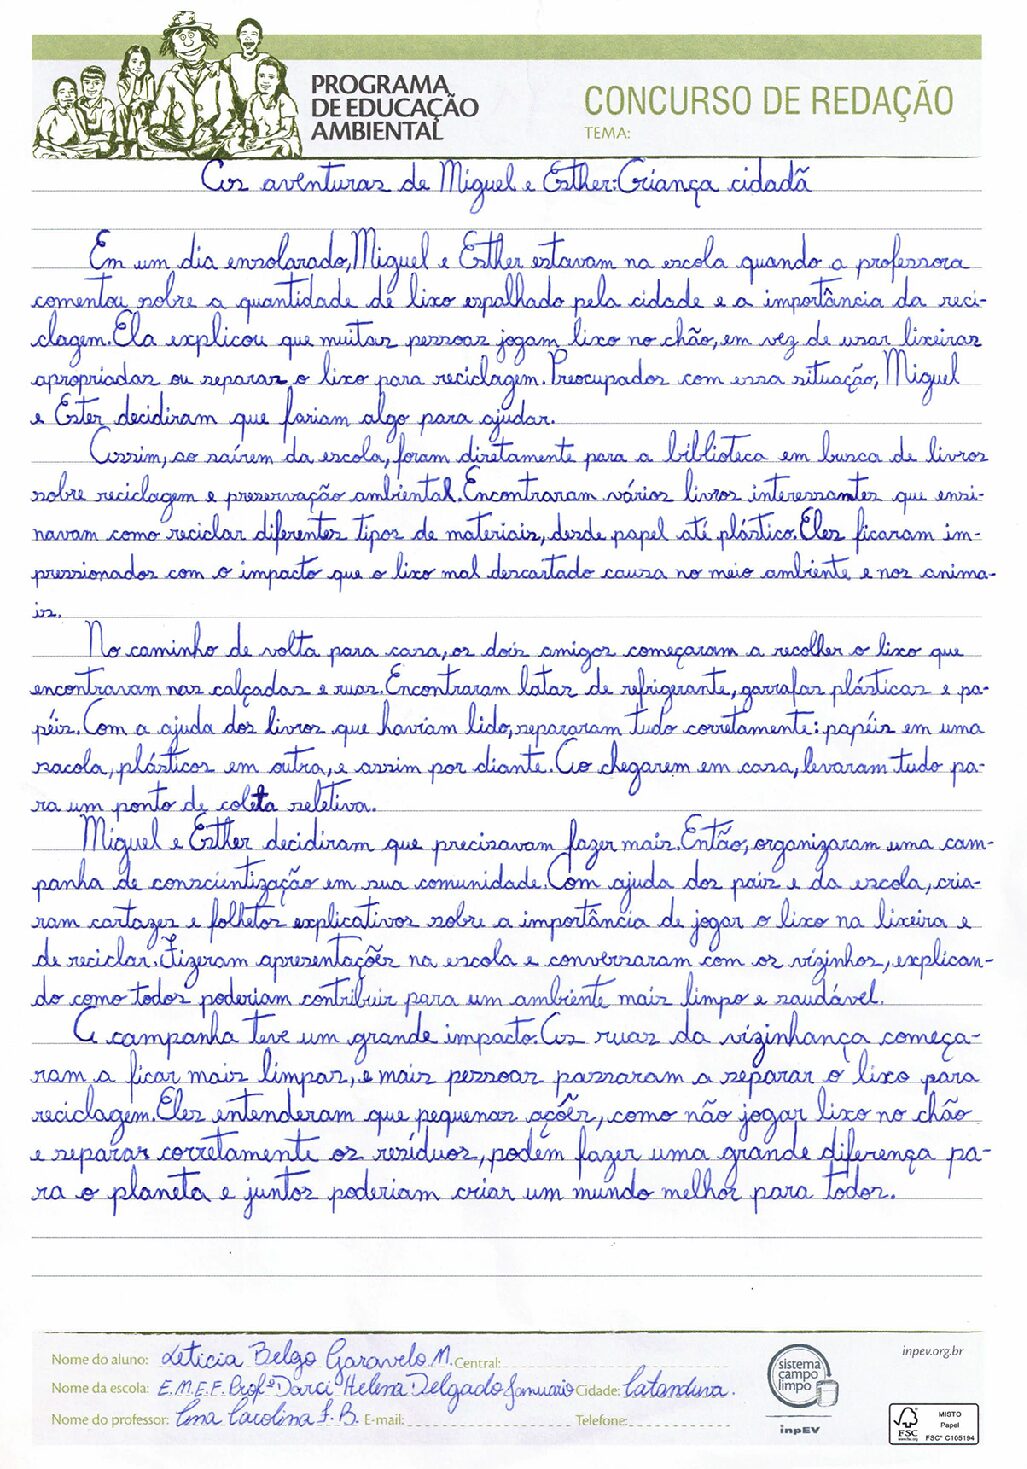 PROGRAMA
DE EDUCAÇÃO
AMBIENTAL
CONCURSO DE REDAÇÃO
TEMA:
As aventuras de Miguel e Esther: Criança cidadã
Em um dia ensolarado, Miguel e Esther estavam na escola quando a professora
comentou sobre a quantidade de lixo espalhado pela cidade e a importância da reci-
clagem. Ela explicou que muitas pessoas jogam lixo no chão, em vez de usar lixeiras
apropriadas ou separar o lixo para reciclagem. Preocupados com essa situação, Miguel
e Ester decidiram que fariam algo para ajudar.
Assim, ao saírem da escola, foram diretamente para a biblioteca em busca de livros
sobre reciclagem e preservação ambiental. Encontraram vários livros interessantes que ensi-
navam como reciclar diferentes tipos de materiais, desde papel até plástico. Eles ficaram im-
pressionados com o impacto que o lixo mal descartado causa no meio ambiente e nos anima-
is.
No caminho de volta para casa, os dois amigos começaram a recolher o lixo que
encontravam nas calçadas e ruas. Encontraram latas de refrigerante, garrafas plásticas e pa-
péis. Com a ajuda dos livros que haviam lido, separaram tudo corretamente: papéis em uma
sacola, plásticos em outra, e assim por diante. Ao chegarem em casa, levaram tudo pa-
ra um ponto de coleta seletiva.
Miguel e Esther decidiram que precisavam fazer mais. Então, organizaram uma cam-
panha de conscientização em sua comunidade. Com ajuda dos pais e da escola, cria-
ram cartazes e folhetos explicativos sobre a importância de jogar o lixo na lixeira e
de reciclar. Fizeram apresentações na escola e conversaram com os vizinhos, explican-
do como todos poderiam contribuir para um ambiente mais limpo e saudável.
A campanha teve um grande impacto. As ruas da vizinhança começa-
ram a ficar mais limpas, e mais pessoas passaram a separar o lixo para
reciclagem. Eles entenderam que pequenas ações, como não jogar lixo no chão
e separar corretamente os resíduos, podem fazer uma grande diferença pa-
ra o planeta e juntos poderiam criar um mundo melhor para todos.
Nome do aluno: Leticia Belgo Garavelo M. Central:
Nome da escola: E.M.E.F. Profª Darci Helena Delgado Januario Cidade: Catanduva.
Nome do professor: Ana Carolina F. B. E-mail: Telefone:
sistema
campo
limpo
inpEV
inpev.org.br
FSC
MISTO
Papel
FSC® C105194